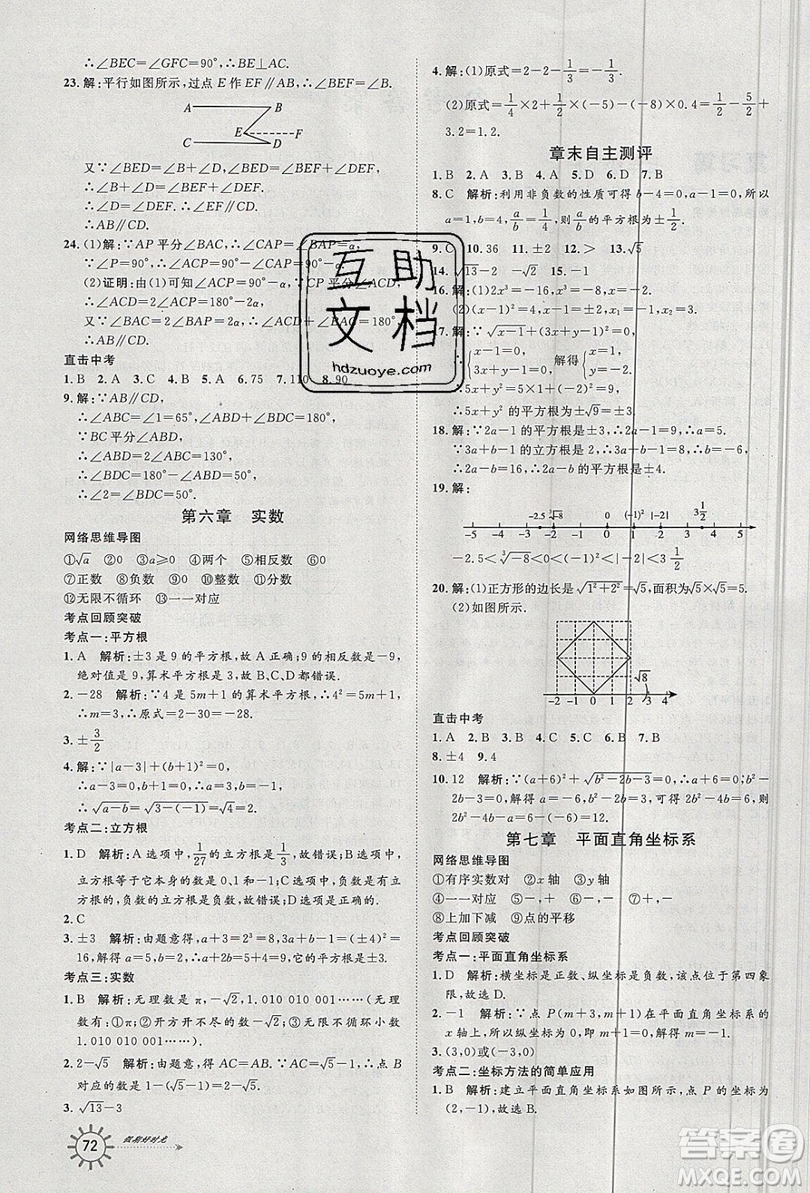 ∴∠BEC=∠GFC=90°,∴BE⊥AC.
23.解:平行如图所示,过点E作EF∥AB,∴∠B=∠BEF.
A B
E F
C D
又∵∠BED=∠B+∠D,
又∵∠BED=∠BEF+∠FED,
∴∠FED=∠D,
∴CD∥EF,
∴AB∥CD.
24.(1)解:∵AP平分∠BAC,∴∠CAP=∠BAP=α,
∵∠P=90°,∴∠ACP=90°-∠CAP=90°-α.
(2)证明:由(1)可知
∴∠ACD=2∠ACP=180°-2α,
又∵∠BAC=2∠BAP=2α,
∴AB∥CD.
直击中考
1.B 2.A 3.C 4.B 5.A 6.75 8.90
9.解:∵AB∥CD,
∴∠ABC=∠1=65°,∠ABD+∠BDC=180°,
∵BC平分∠ABD,
∴∠ABD=2∠ABC=130°,
∴∠BDC=180°-∠ABD=50°,
∴∠2=∠BDC=50°.
第六章 实数
网络思维导图
①√a ②0 ③a≥0 ④两个 ⑤相反数 ⑥0
⑦正数 ⑧负数 ⑨0 ⑩整数 ⑪分数
⑫无限不循环 ⑬一一对应
考点回顾突破
考点一:平方根
1.A 解析:±3是9的平方根,故A正确;9的相反数是-9,
绝对值是9,算术平方根是3,故B、C、D都错误.
2.-28 解析:∵4是5m+1的算术平方根,∴4²=5m+1,
∴m=3,∴原式=2-10m=-28.
3.±3/2
4.解:∵|a-3|+(b+1)²=0,
∴a-3=0,b+1=0,∴a=3,b=-1,
∴√(a-b)=√(3-(-1))=√4=2.
考点二:立方根
1.D 解析:A选项中,1/27的立方根为1/3,故错误;B选项中,
立方根等于本身的数为0、1和-1,故错误;C选项中,负数有立
方根,负数的立方根为负数,故错误;D选项正确.
2.C
3.±3 解析:由题意得,a+3=2³=8,3a+b-1=4²=16,
解得a=5,b=2,∴a+2b=9,它的平方根是±3.
考点三:实数
1.B 解析:无理数是π,-√2,1.010 010 001……(无理
数有:①π;②开方开不尽的数;③无限不循环小数,如
1.010 010 001……).
2.2-√5 解析:由题意,得AC=AB=√5-1,∴点C
对应的数是1-(√5-1)=1-√5+1=2-√5.
3.√13-3
72
假期好时光
4.解:(1)原式=2-2-1/3=-1/3.
(2)原式=1/4×2+1/5×(-5)-(-8)×1/4=1/2-1/5×5+
1/3.2=1.2.
章末自主测评
1.B 2.A 3.B 4.A 5.C 6.D 7.B
8.C 解析:利用非负数的性质可得b-4=0,b-a=3,所以
a=1,b=4,a/b=1/4,则a/b的平方根为±1/2.
9.C 10.36 11.±2 12.> 13.√5
14.√13-2 -√5 15.-1
16.解:(1)2x³=-16,x³=-8,∴x=-2.
(2)(x-1)²=4,x-1=±2,∴x=3或x=-1.
17.解:∵√(x-1)+(3x+y-1)²=0,
∴{x-1=0, 3x+y-1=0, 解得{x=1, y=-2,
∴5x+y²=5×1+(-2)²=9,
∴5x+y²的平方根为±√9=±3.
18.解:∵2a-1的平方根是±√3,∴2a-1=3,∴a=2,
∵3a-2b-1的平方根是±3,∴3a-2b-1=9,∴b=-2,
∴5a-3b=5×2-3×(-2)=16,
∴5a-3b的平方根是±4.
19.解:
-2.5 ³√-8 0 (-1)² |-2| 3 1/2
-5 -4 -3 -2 -1 0 1 2 3 4 5
-2.5<³√-8<0<(-1)²<|-2|<3 1/2
20.解:(1)正方形的边长是√(1²+2²)=√5,面积为√5×√5=5.
(2)如图所示.
√8
-2 -1 0 1 2 3 4
直击中考
1.A 2.B 3.D 4.C 5.C 6.B 7.B
8.±4 9.4
10.12 解析:∵(a+6)²+√(b²-2b-3)=0,∴a+6=0,b²-
2b-3=0,解得a=-6,b²-2b=3,
∴2b²-4b=6,则2b²-4b-a=6-(-6)=12.
第七章 平面直角坐标系
网络思维导图
①有序实数对 ②x轴 ③y轴
④-- ⑤-,+ ⑥-- ⑦+,-
⑧上加下减 ⑨点的平移
考点回顾突破
考点一:平面直角坐标系
1.D 解析:横坐标是正数、纵坐标是负数,该点位于第四象
限,故选D.
2.-1 解析:因为点P(m+3,m+1)在平面直角坐标系的
x轴上,所以纵坐标m+1=0,解得m=-1.
3.(3,0)或(-3,0)
考点二:坐标方法的简单应用
1.B 解析:建立平面直角坐标系如图所示,点P的坐标为
(2,-1),故选B.
互助
文档
hdzuoye.com
答案卷
MXQE.COM